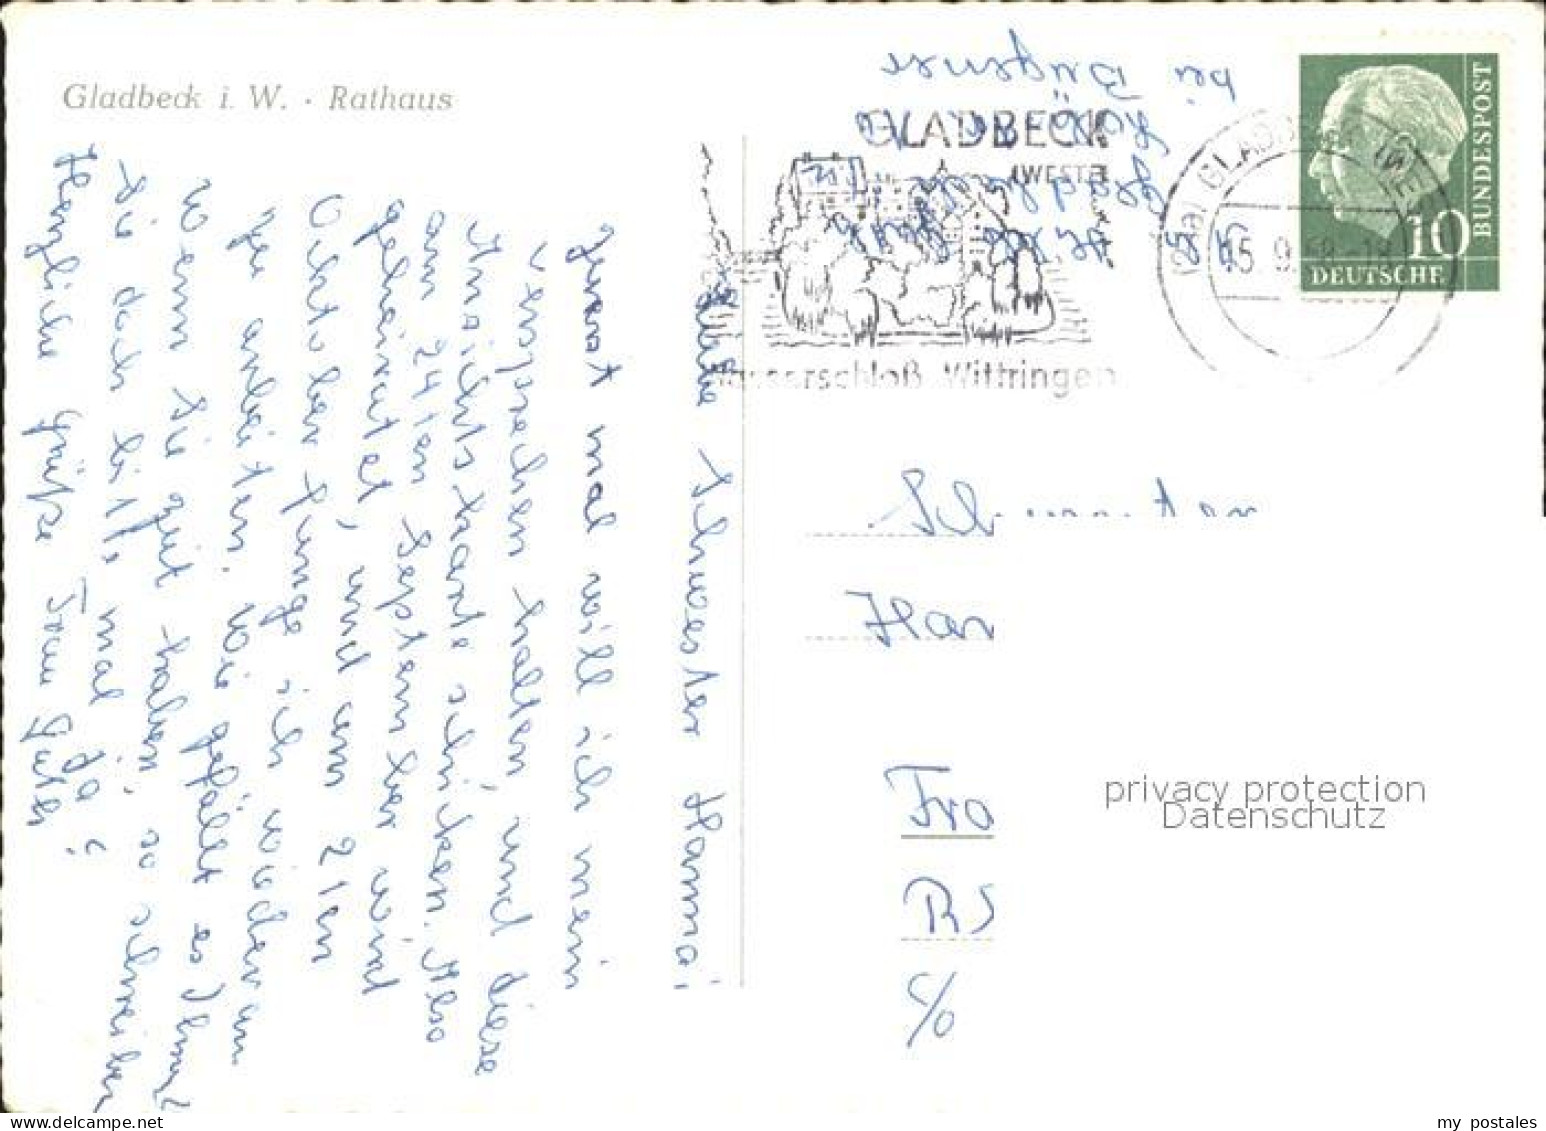 Gladbeck i. W. · Rathaus
Liebe Schwester Hanna!
zuerst mal will ich mein
versprechen halten, und diese
Ansichtskarte schicken. Also
am 24ten September wird
geheiratet, und am 21en
Oktober fange ich wieder an
zu arbeiten. Wie gefällt es Ihnen?
Wenn Sie Zeit haben, so schreiben
Sie doch bitte mal, ja?
Herzliche Grüße Frau
bei
GLADBECK
(WESTF
Wasserschloß Wittringen
GLADBECK (WESTF
15. 9. 58 - 18
BUNDESPOST
10
DEUTSCHE
Schwester
Han
Fra
RS
c/o
privacy protection
Datenschutz
my postales